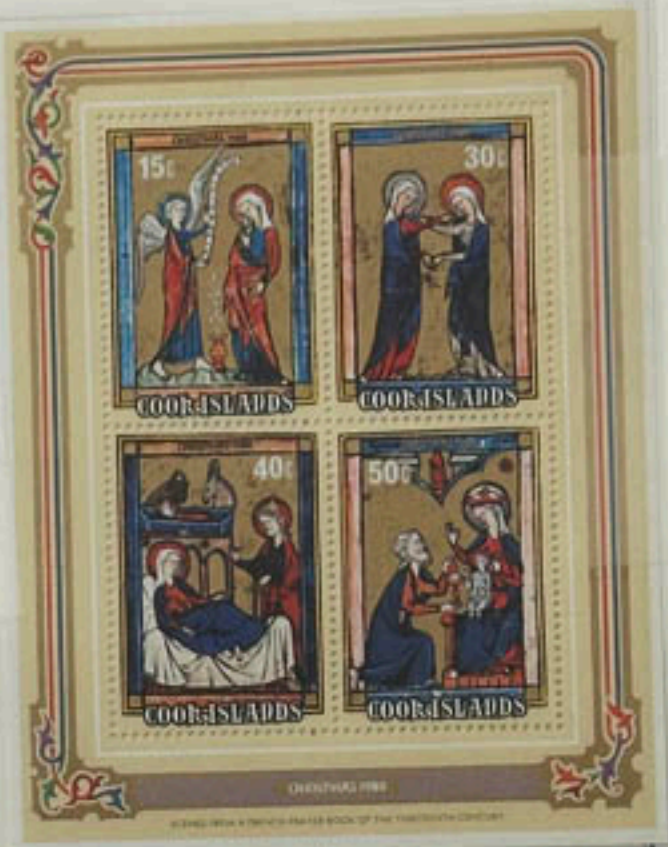 CHRISTMAS 1980
15c
30c
COOK ISLANDS
COOK ISLANDS
40c
50c
COOK ISLANDS
COOK ISLANDS
CHRISTMAS 1980
SCENES FROM A FRENCH PRAYER BOOK OF THE THIRTEENTH CENTURY